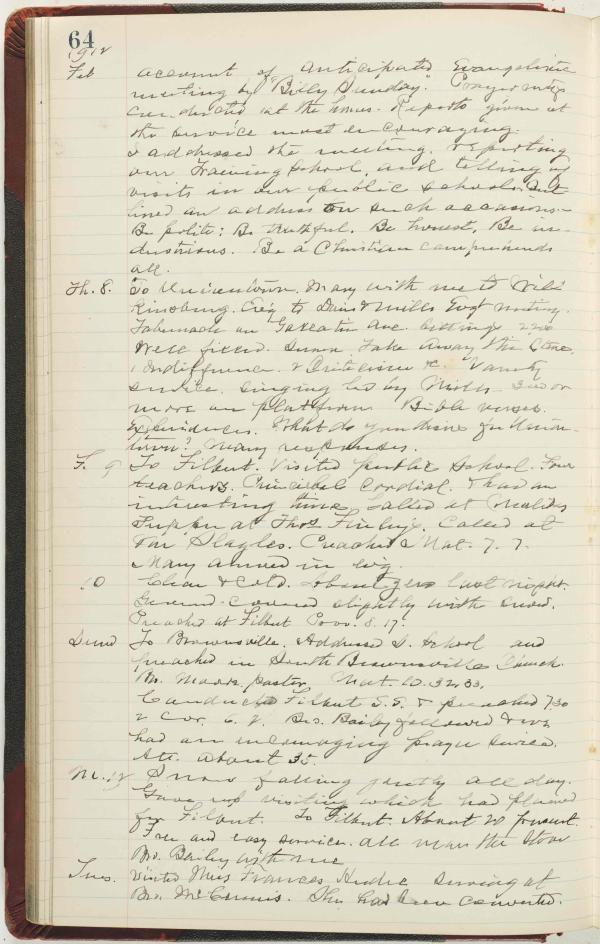 64
1912
Feb account of anticipated Evangelistic
meeting by "Billy Sunday." Prayer mtgs
conducted at the homes. Reports given at
the service most encouraging.
I addressed the meeting, reporting
our Training School, and telling of
visits in our public schools. Out
lined an address on such occasions -
Be polite: Be truthful. Be honest, Be in-
dustrious. Be a Christian comprehends
all.
Th. 8. To Uniontown. Mary with me to
Eve'g to Davis & Mills Evgt meeting.
Tabernacle on Ave. Sittings 2200
Well filled. Sermon. Take away the Stone.
1 Indifference. 2 Criticism &c. Varied
service. Singing led by Mills. 300 or
more on platform. Bible verses.
Experiences. What do you desire for Union-
town? Many responses.
F. 9 To Filbert. Visited public school. Four
teachers. Principal cordial. I had an
interesting time. Called at
Supper at Thos Finley's. Called at
Slagles. Preached Mat. 7. 7.
Mary arrived in ev'g.
10 Clear & cold. About zero last night.
Ground covered slightly with snow.
Preached at Filbert Prov. 8. 17.
Sund To Brownsville. Addressed S. School and
preached in South Brownsville Church.
Bro. Moore pastor. Mat. 10. 32, 33.
Conducted Filbert S.S. & preached 7.30
2 Cor. 6. 2. Bro. Bailey followed & we
had an encouraging prayer service.
Att. about 35.
M. 12 Snow falling gently all day.
Gave up visiting which had planned
for Filbert. To Filbert. About 20 present.
Free and easy service. All near the stove
Bro. Bailey with me
Tues. Visited Miss Frances serving at
Bro. McGinnis. She had been converted.